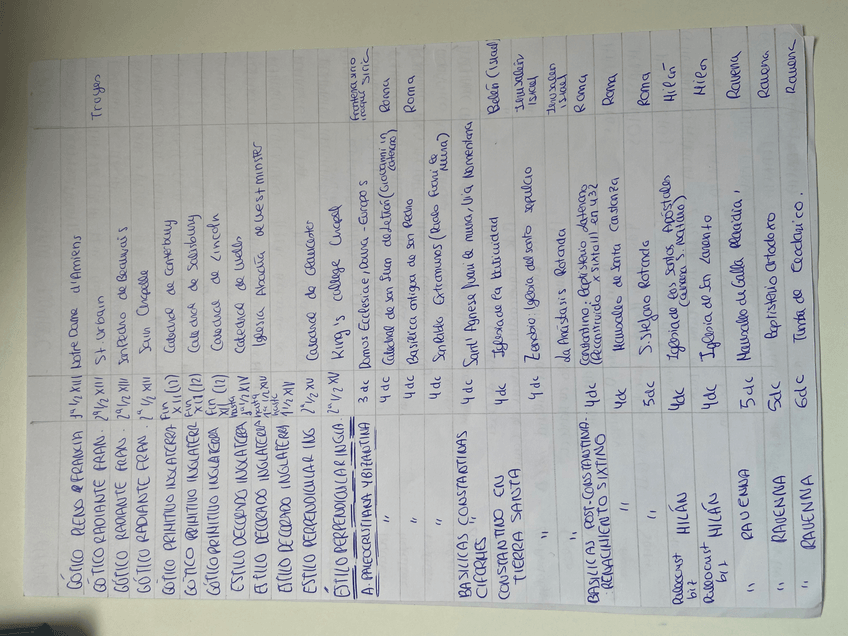 GÓTICO PLENO FRANCIA 1ª 1/2 XIII Notre Dame d'Amiens
GÓTICO RADIANTE FRAN. 2ª 1/2 XIII St. Urbain Troyes
GÓTICO RADIANTE FRAN. 2ª 1/2 XIII San Pedro de Beauvais
GÓTICO RADIANTE FRAN. 2ª 1/2 XIII Chapelle
GÓTICO PRIMITIVO INGLATERRA Fin XII (12) Catedral de Canterbury
GÓTICO PRIMITIVO INGLATERR Fin XII (12) Catedral de Salisbury
GÓTICO PRIMITIVO INGLATERRA Fin XII (12) Catedral de Lincoln
ESTILO DECORADO INGLATERRA hasta 1ª 1/2 XIV Catedral de Wells
ESTILO DECORADO INGLATERRA hasta 1ª 1/2 XIV Iglesia Abadía de Westminster
ESTILO DECORADO INGLATERRA hasta 1 1/2 XIV
ESTILO PERPENDICULAR ING 2ª 1/2 XIV Catedral de Gloucester
ESTILO PERPENDICULAR INGLA 2ª 1/2 XV King's college Chapel
A. PALEOCRISTIANA Y BIZANTINA 3 dc Domus Ecclesiae, Doura - Europos Frontera
" 4 dc Catedral de San Juan de Letrán (Giovanni in Laterano) Roma
" 4 dc Basílica antigua de San Pedro Roma
" 4 dc San Pablo Extramuros (Paolo Fuori le Mura)
BASILICAS CONSTANTINAS 4 dc Sant' Agnese fuori le mura, Via Nomentana
CIFORMES "
CONSTANTINO EN TIERRA SANTA 4 dc Iglesia de la Natividad Belén (Israel)
" 4 dc Zenobio: Iglesia del santo sepulcro Jerusalén Israel
" La Anástasis Rotonda Jerusalen Israel
BASILICAS POST-CONSTANTINA. RENACIMIENTO SIXTINO 4 dc Constantino; Baptisterio Laterano (Reconstruido x Sixto III en 432 Roma
" 4 dc Mausoleo de Santa Constanza Roma
" 5 dc S. Stefano Rotonda Roma
Paleocrist biz MILÁN 4 dc Iglesia de los Santos Apóstoles Milán
Paleocrist biz MILÁN 4 dc Iglesia de San Lorenzo Milan
" RAVENNA 5 dc Mausoleo de Galla Placidia, Ravena
" RAVENNA 5 dc Baptisterio Ortodoxo Ravena
" RAVENNA 6 dc Tumba de Teodorico. Ravena